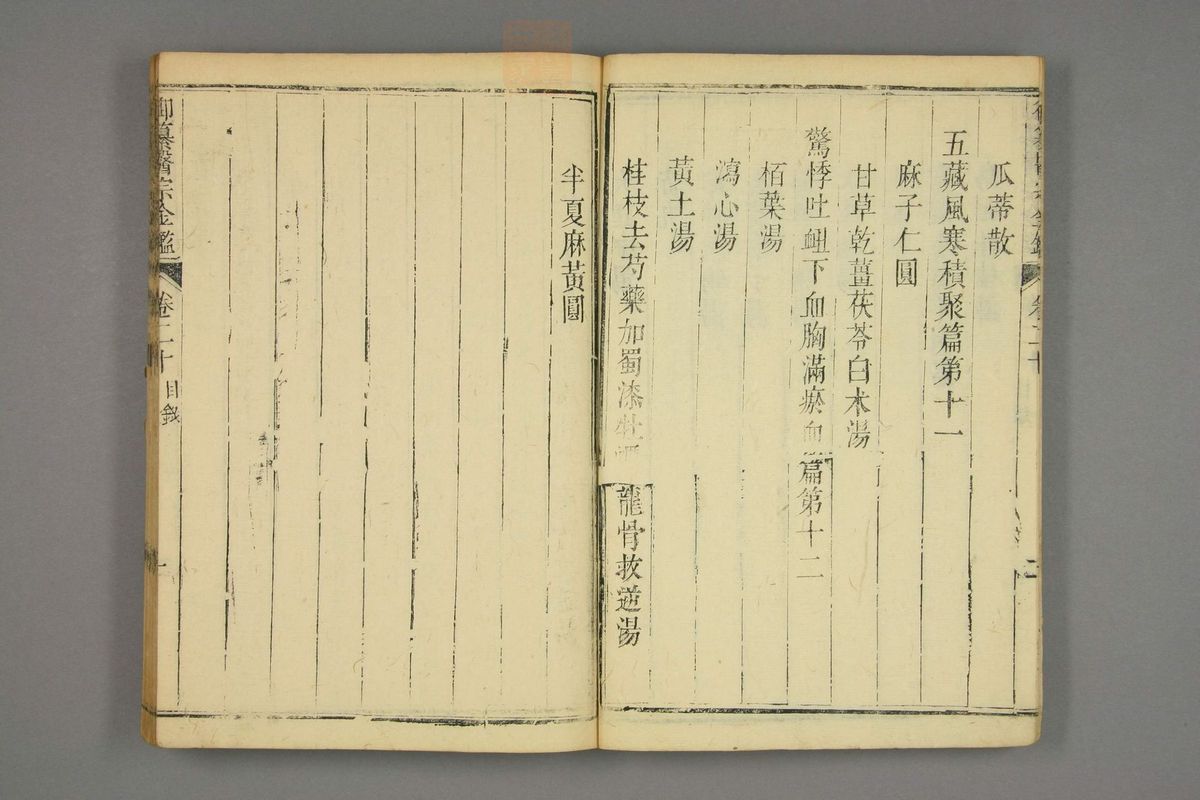 瓜蒂散
五藏風寒積聚篇第十一
麻子仁圓
甘草乾薑茯苓白朮湯
驚悸吐衄下血胸滿瘀血篇第十二
栢葉湯
瀉心湯
黃土湯
桂枝去芍藥加蜀漆牡 龍骨救逆湯
半夏麻黃圓
御纂醫宗金鑑 卷二十 目錄 一